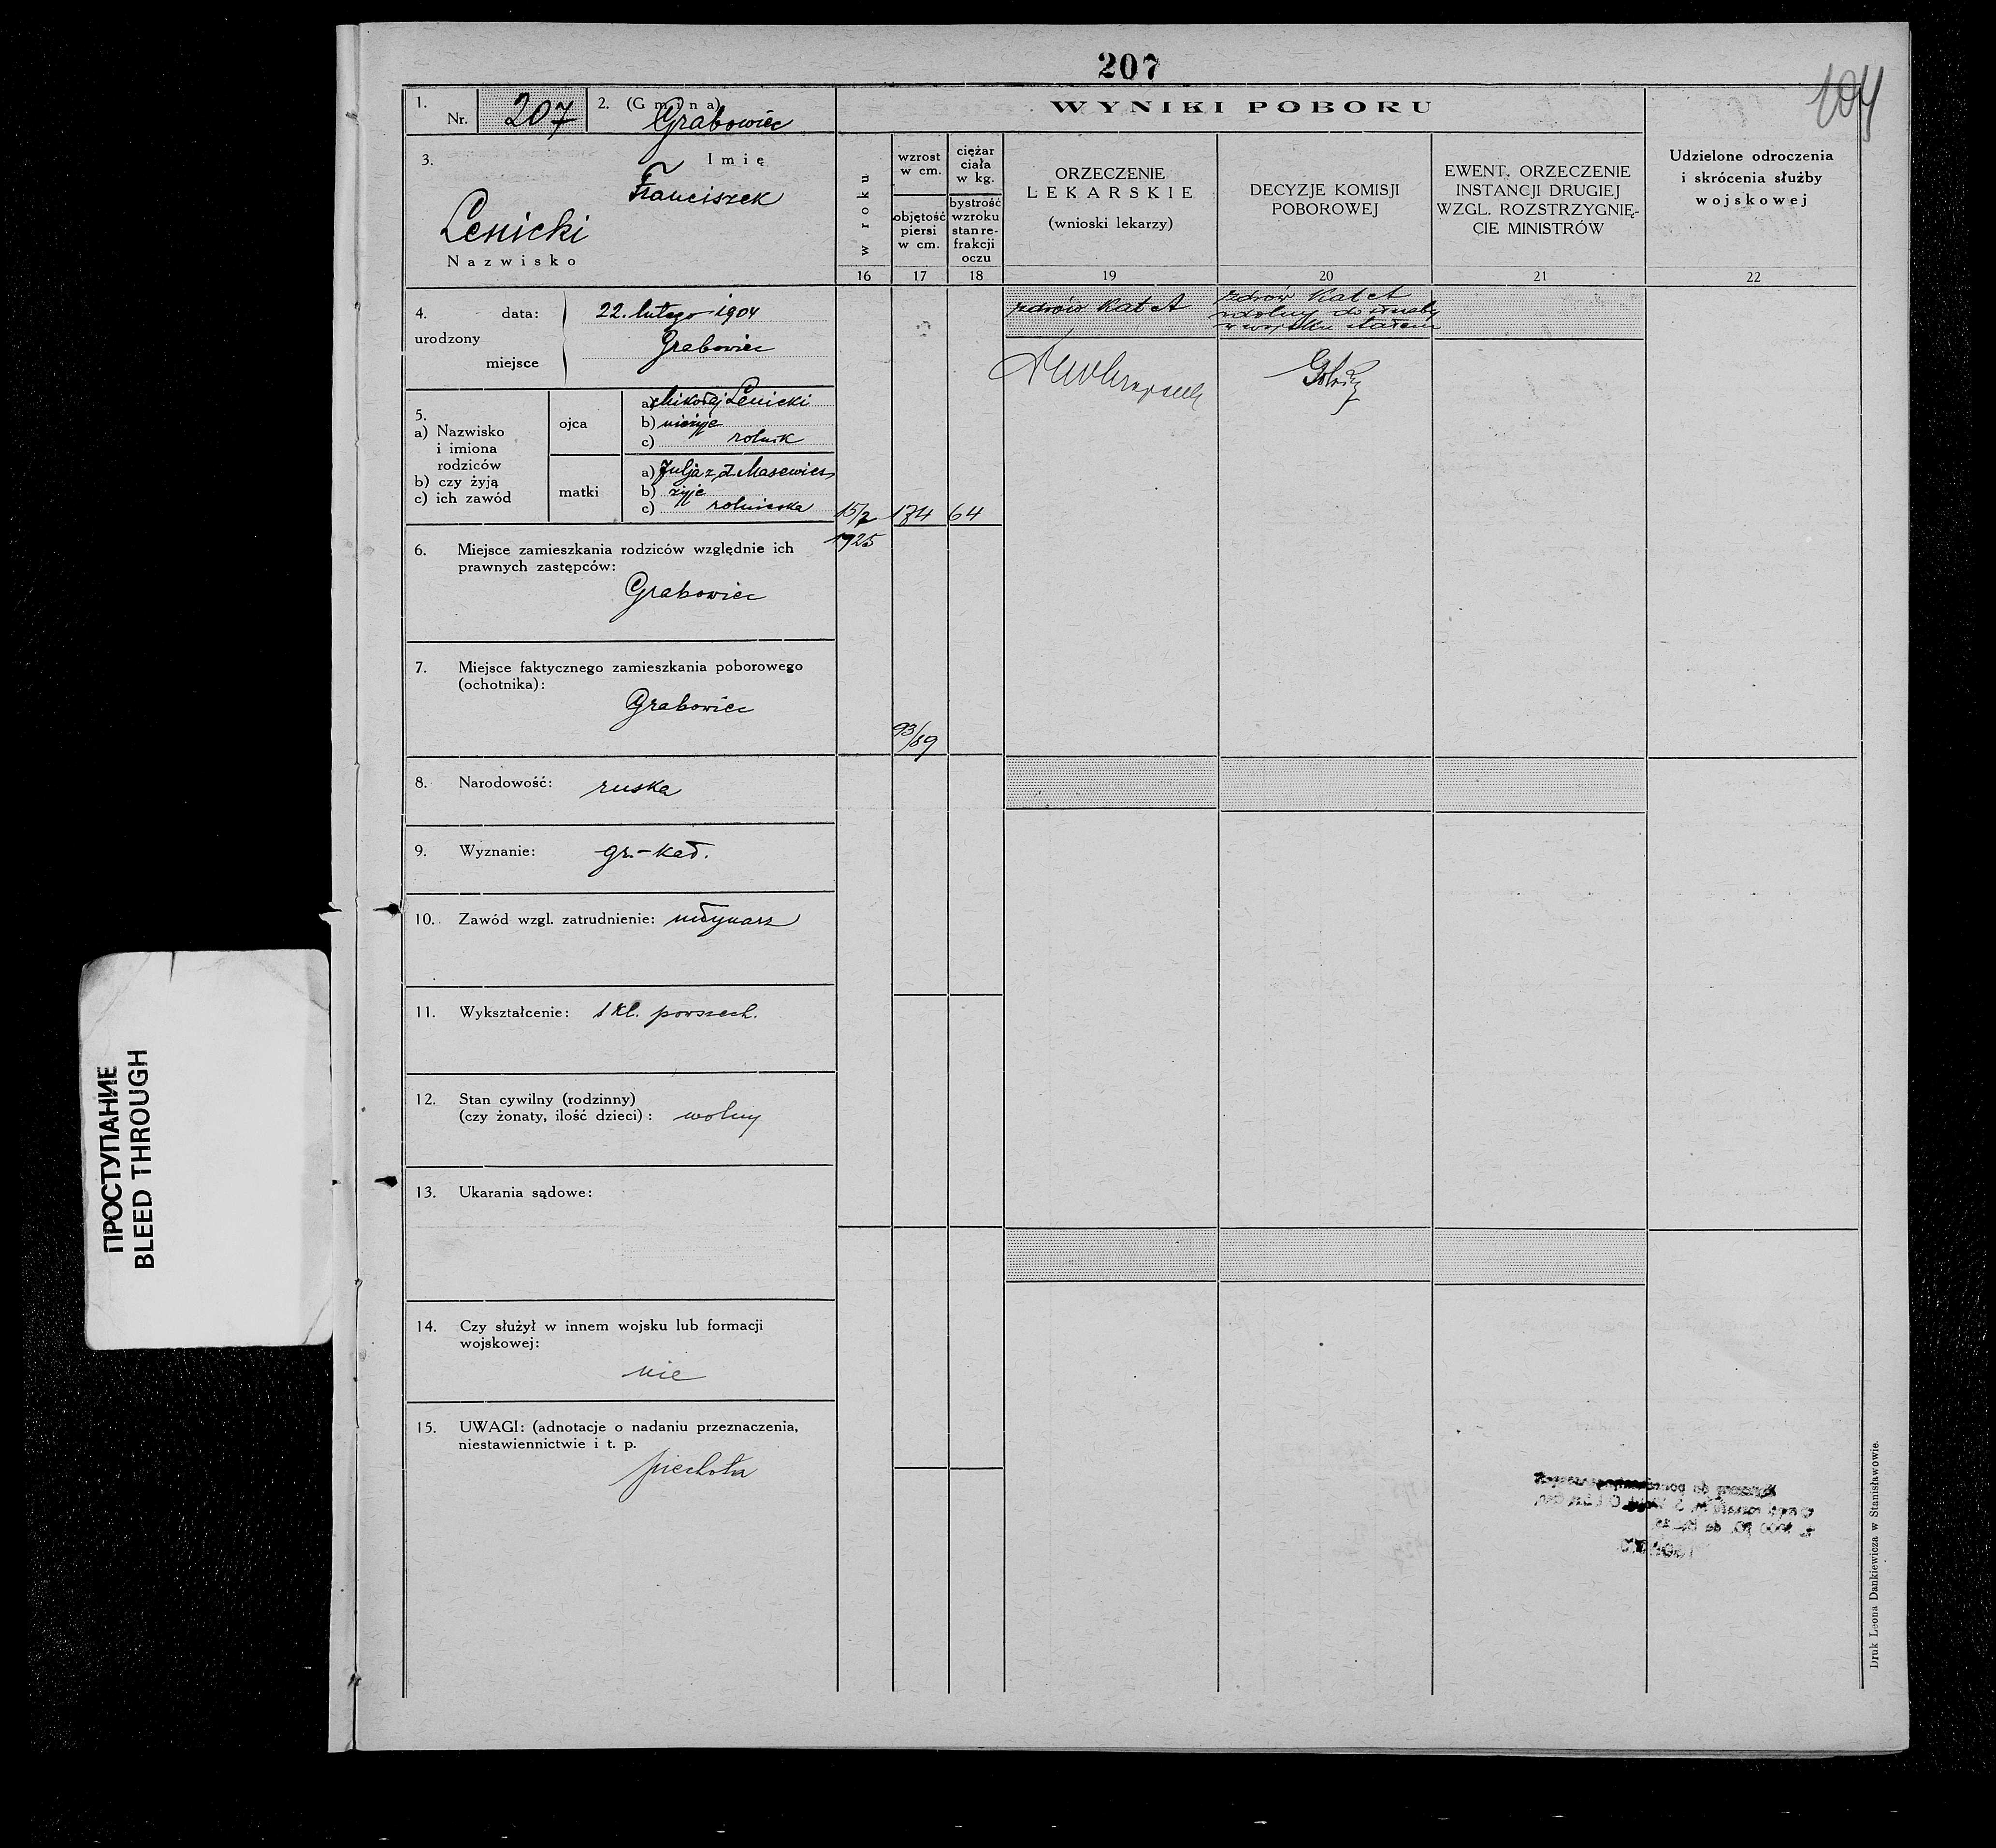 207
104
1. Nr. 207
2. (Gmina) Grabowiec
WYNIKI POBORU
3. Imię
Franciszek
Lenicki
Nazwisko
w roku
wzrost w cm.
objętość piersi w cm.
ciężar ciała w kg.
bystrość wzroku stan re-frakcji oczu
ORZECZENIE
LEKARSKIE
(wnioski lekarzy)
DECYZJE KOMISJI
POBOROWEJ
EWENT. ORZECZENIE
INSTANCJI DRUGIEJ
WZGL. ROZSTRZYGNIĘ-
CIE MINISTRÓW
Udzielone odroczenia
i skrócenia służby
wojskowej
16 17 18 19 20 21 22
4. urodzony
data: 22. lutego 1904
miejsce Grabowiec
zdrów Kat A
zdrów Kat A
zdolny do służby
w wojsku stałem
5.
a) Nazwisko
i imiona
rodziców
b) czy żyją
c) ich zawód
ojca
a) Mikołaj Lenicki
b) nieżyje
c) rolnik
matki
a) Julja z d. Masewicz
b) żyje
c) rolniczka
15/7 174 64
1925
6. Miejsce zamieszkania rodziców względnie ich
prawnych zastępców:
Grabowiec
7. Miejsce faktycznego zamieszkania poborowego
(ochotnika):
Grabowiec
93/89
8. Narodowość: ruska
9. Wyznanie: gr.-kat.
10. Zawód wzgl. zatrudnienie: młynarz
11. Wykształcenie: 1 kl. powszech.
12. Stan cywilny (rodzinny)
(czy żonaty, ilość dzieci): wolny
13. Ukarania sądowe:
14. Czy służył w innem wojsku lub formacji
wojskowej:
nie
15. UWAGI: (adnotacje o nadaniu przeznaczenia,
niestawiennictwie i t. p.
piechota
Druk Leona Dankiewicza w Stanisławowie.
ПРОСТУПАНИЕ
BLEED THROUGH